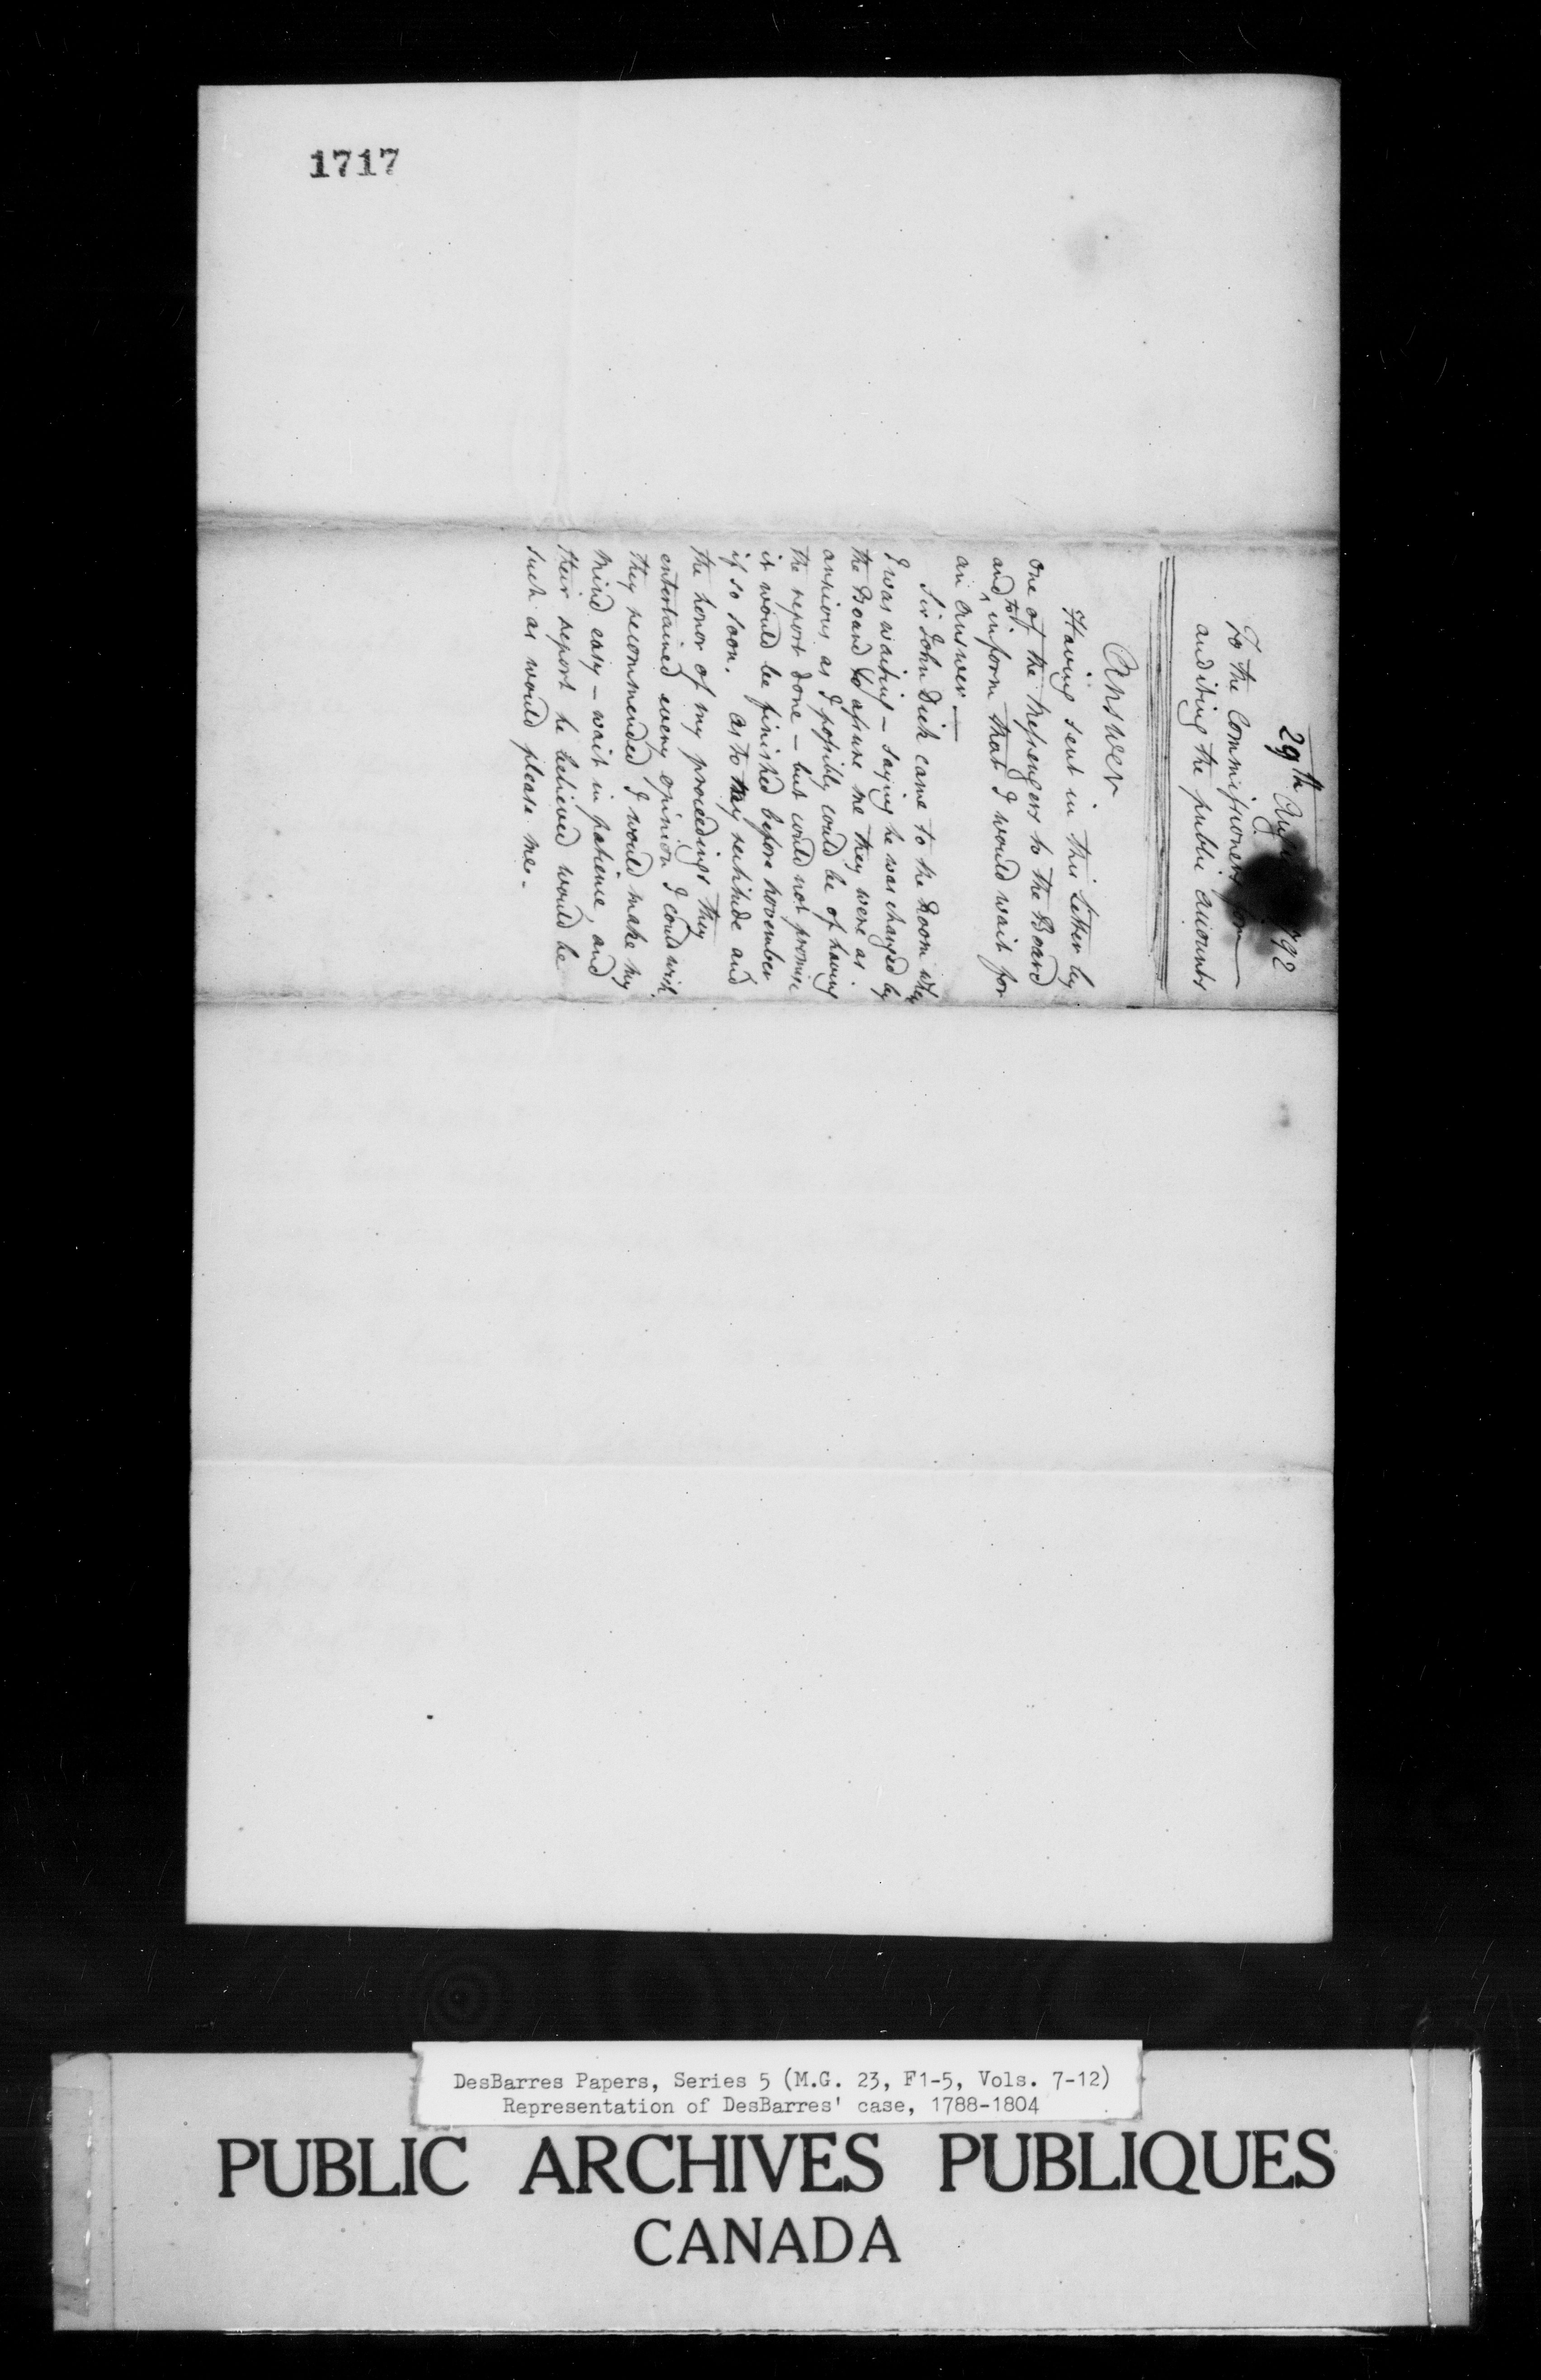 1717
29th Aug 792
To the Commissioners for
auditing the public accounts
Answer
Having sent in this Letter by
one of the Messengers to the Board
and to inform that I would wait for
an answer —
Sir John Dick came to the Room where
I was waiting – saying he was charged by
the Board to assure me they were as
anxious as I possibly could be of having
the report done – but could not promise
it would be finished before november
if so soon. As to my rectitude and
the honor of my proceedings they
entertained every opinion I could wish.
they recommended I would make my
mind easy – wait in patience, and
their report he believed would be
such as would please me.
DesBarres Papers, Series 5 (M.G. 23, F1-5, Vols. 7-12)
Representation of DesBarres' case, 1788-1804
PUBLIC ARCHIVES PUBLIQUES
CANADA